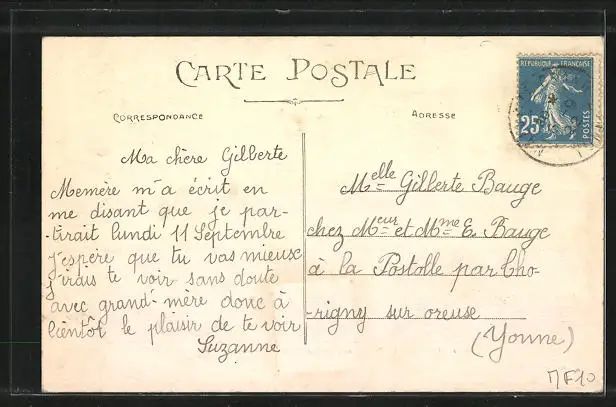 CARTE POSTALE
CORRESPONDANCE
ADRESSE
REPUBLIQUE FRANÇAISE
25c
POSTES
Ma chère Gilberte
Memère m'a écrit en
me disant que je par-
-tirait lundi 11 Septembre
j'espère que tu vas mieux
j'irais te voir sans doute
avec grand-mère donc à
bientôt le plaisir de te voir
Suzanne
Melle Gilberte Bauge
chez Meur et Mme E. Bauge
à la Postolle par Tho-
-rigny sur oreuse
(Yonne)
MF10